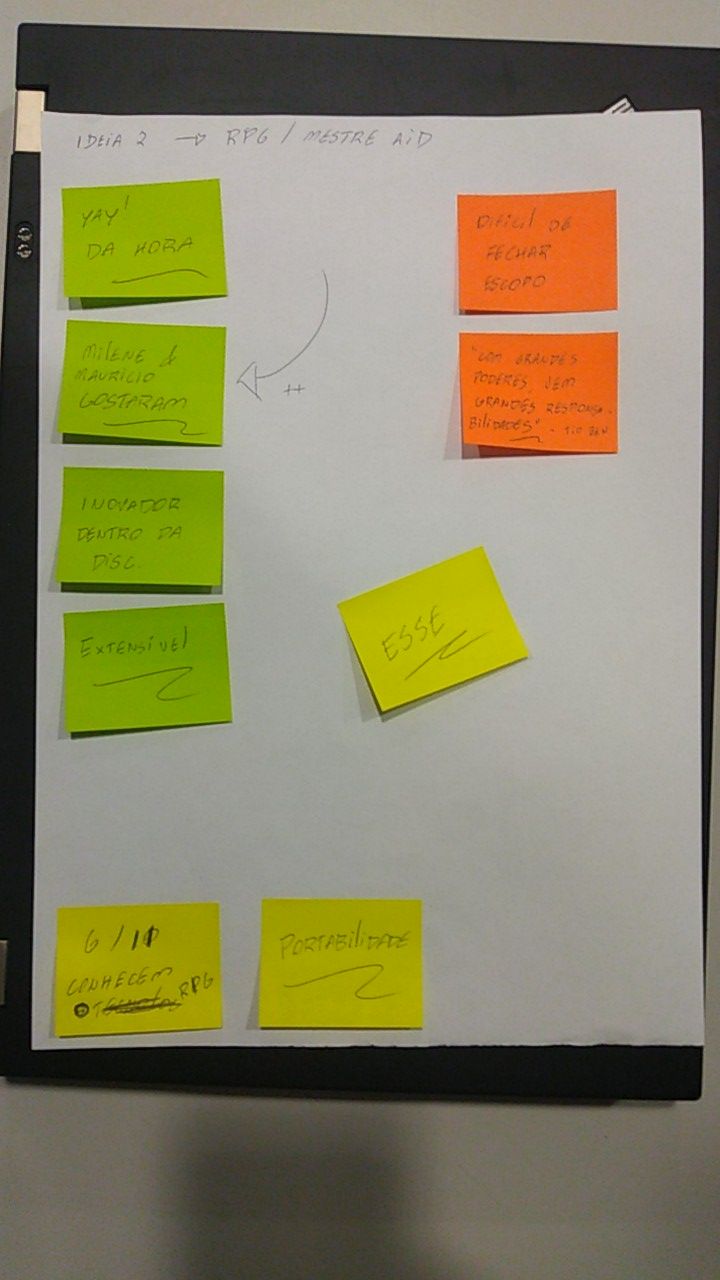 IDEIA 2 → RPG / MESTRE AID
YAY!
DA HORA
MILENE &
MAURICIO
GOSTARAM
++
INOVADOR
DENTRO DA
DISC.
EXTENSÍVEL
DIFICIL DE
FECHAR
ESCOPO
"COM GRANDES
PODERES, VEM
GRANDES RESPONSA-
BILIDADES" - TIO BEN
ESSE
6 / 11
CONHECEM
O RPG
PORTABILIDADE